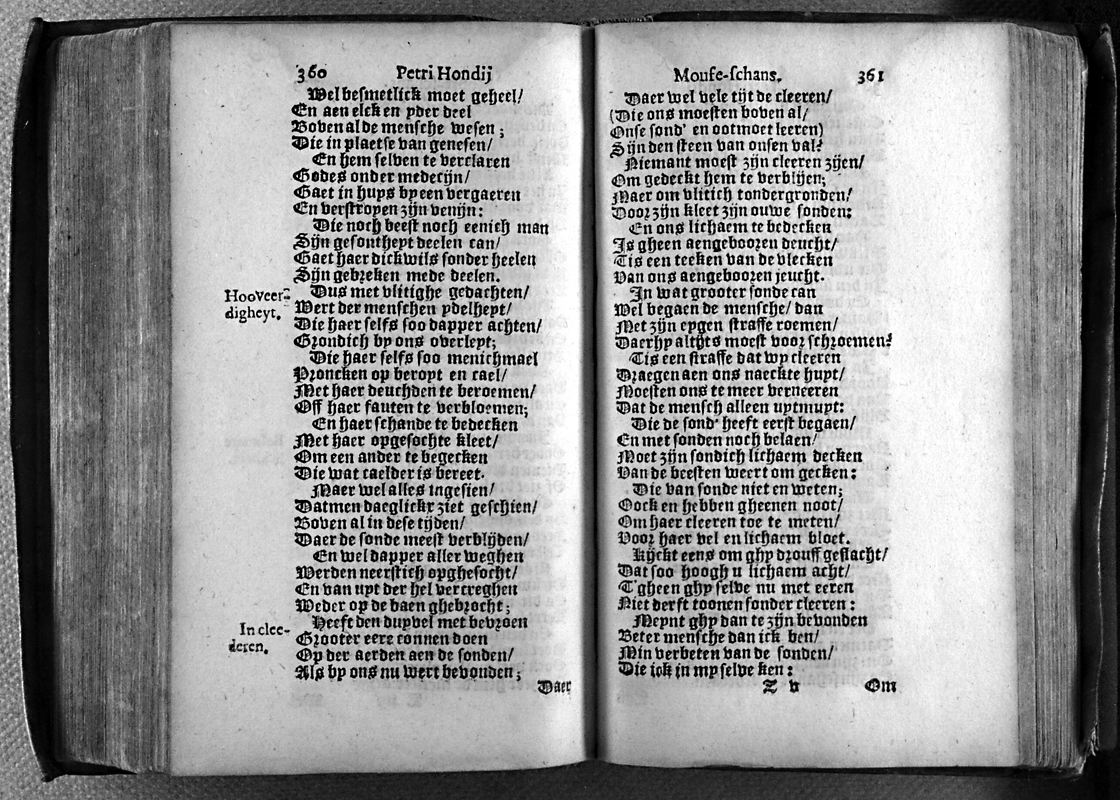 360 Petri Hondij
Wel besmetlick moet geheel/
En aen elck en yder deel
Boven al de mensche wesen;
Die in plaetse van genesen/
En hem selven te verclaren
Godes onder medecijn/
Gaet in huys by een vergaeren
En verstroyen zijn venijn:
Die noch beest noch eenich man
Sijn gesontheyt deelen can/
Gaet haer dickwils sonder heelen
Sijn gebreken mede deelen.
Hooveer-
digheyt.
Dus met vlitighe gedachten/
Wert der menschen ydelheyt/
Die haer selfs soo dapper achten/
Grondich by ons overleyt;
Die haer selfs soo menichmael
Proncken op beroyt en cael/
Met haer deuchden te beroemen/
Off haer fauten te verbloemen;
En haer schande te bedecken
Met haer opgesochte kleet/
Om een ander te begecken
Die wat caelder is bereet.
Maer wel alles ingesien/
Datmen daeglickx ziet geschien/
Boven al in dese tijden/
Daer de sonde meest verblijden/
En wel dapper aller weghen
Werden neerstich opghesocht/
En van uyt der hel vercreghen
Weder op de baen ghebrocht;
In clee-
deren.
Heeft den duyvel met bevroen
Grooter eere connen doen
Op der aerden aen de sonden/
Als by ons nu wert bevonden;
Daer
Mouse-schans. 361
Daer wel vele tijt de cleeren/
(Die ons moesten boven al/
Onse sond' en ootmoet leeren)
Sijn den steen van onsen val?
Niemant moest zijn cleeren zijen/
Om gedeckt hem te verblijen;
Maer om vlitich tondergronden/
Door zijn kleet zijn ouwe sonden:
En ons lichaem te bedecken
Is gheen aengebooren deucht/
Tis een teeken van de vlecken
Van ons aengebooren jeucht.
In wat grooter sonde can
Wel begaen de mensche/ dan
Met zijn eygen straffe roemen/
Daer hy altijts moest voor schroemen?
Tis een straffe dat wy cleeren
Draegen aen ons naeckte huyt/
Moesten ons te meer verneeren
Dat de mensch alleen uytmuyt:
Die de sond' heeft eerst begaen/
En met sonden noch belaen/
Moet zijn sondich lichaem decken
Van de beesten weert om gecken:
Die van sonde niet en weten;
Oock en hebben gheenen noot/
Om haer cleeren toe te meten/
Voor haer vel en lichaem bloet.
Kijckt eens om ghy drouff geslacht/
Dat soo hoogh u lichaem acht/
T'gheen ghy selve nu met eeren
Niet derft toonen sonder cleeren:
Meynt ghy dan te zijn bevonden
Beter mensche dan ick ben/
Min verbeten van de sonden/
Die ick in my selve ken:
Z v Om